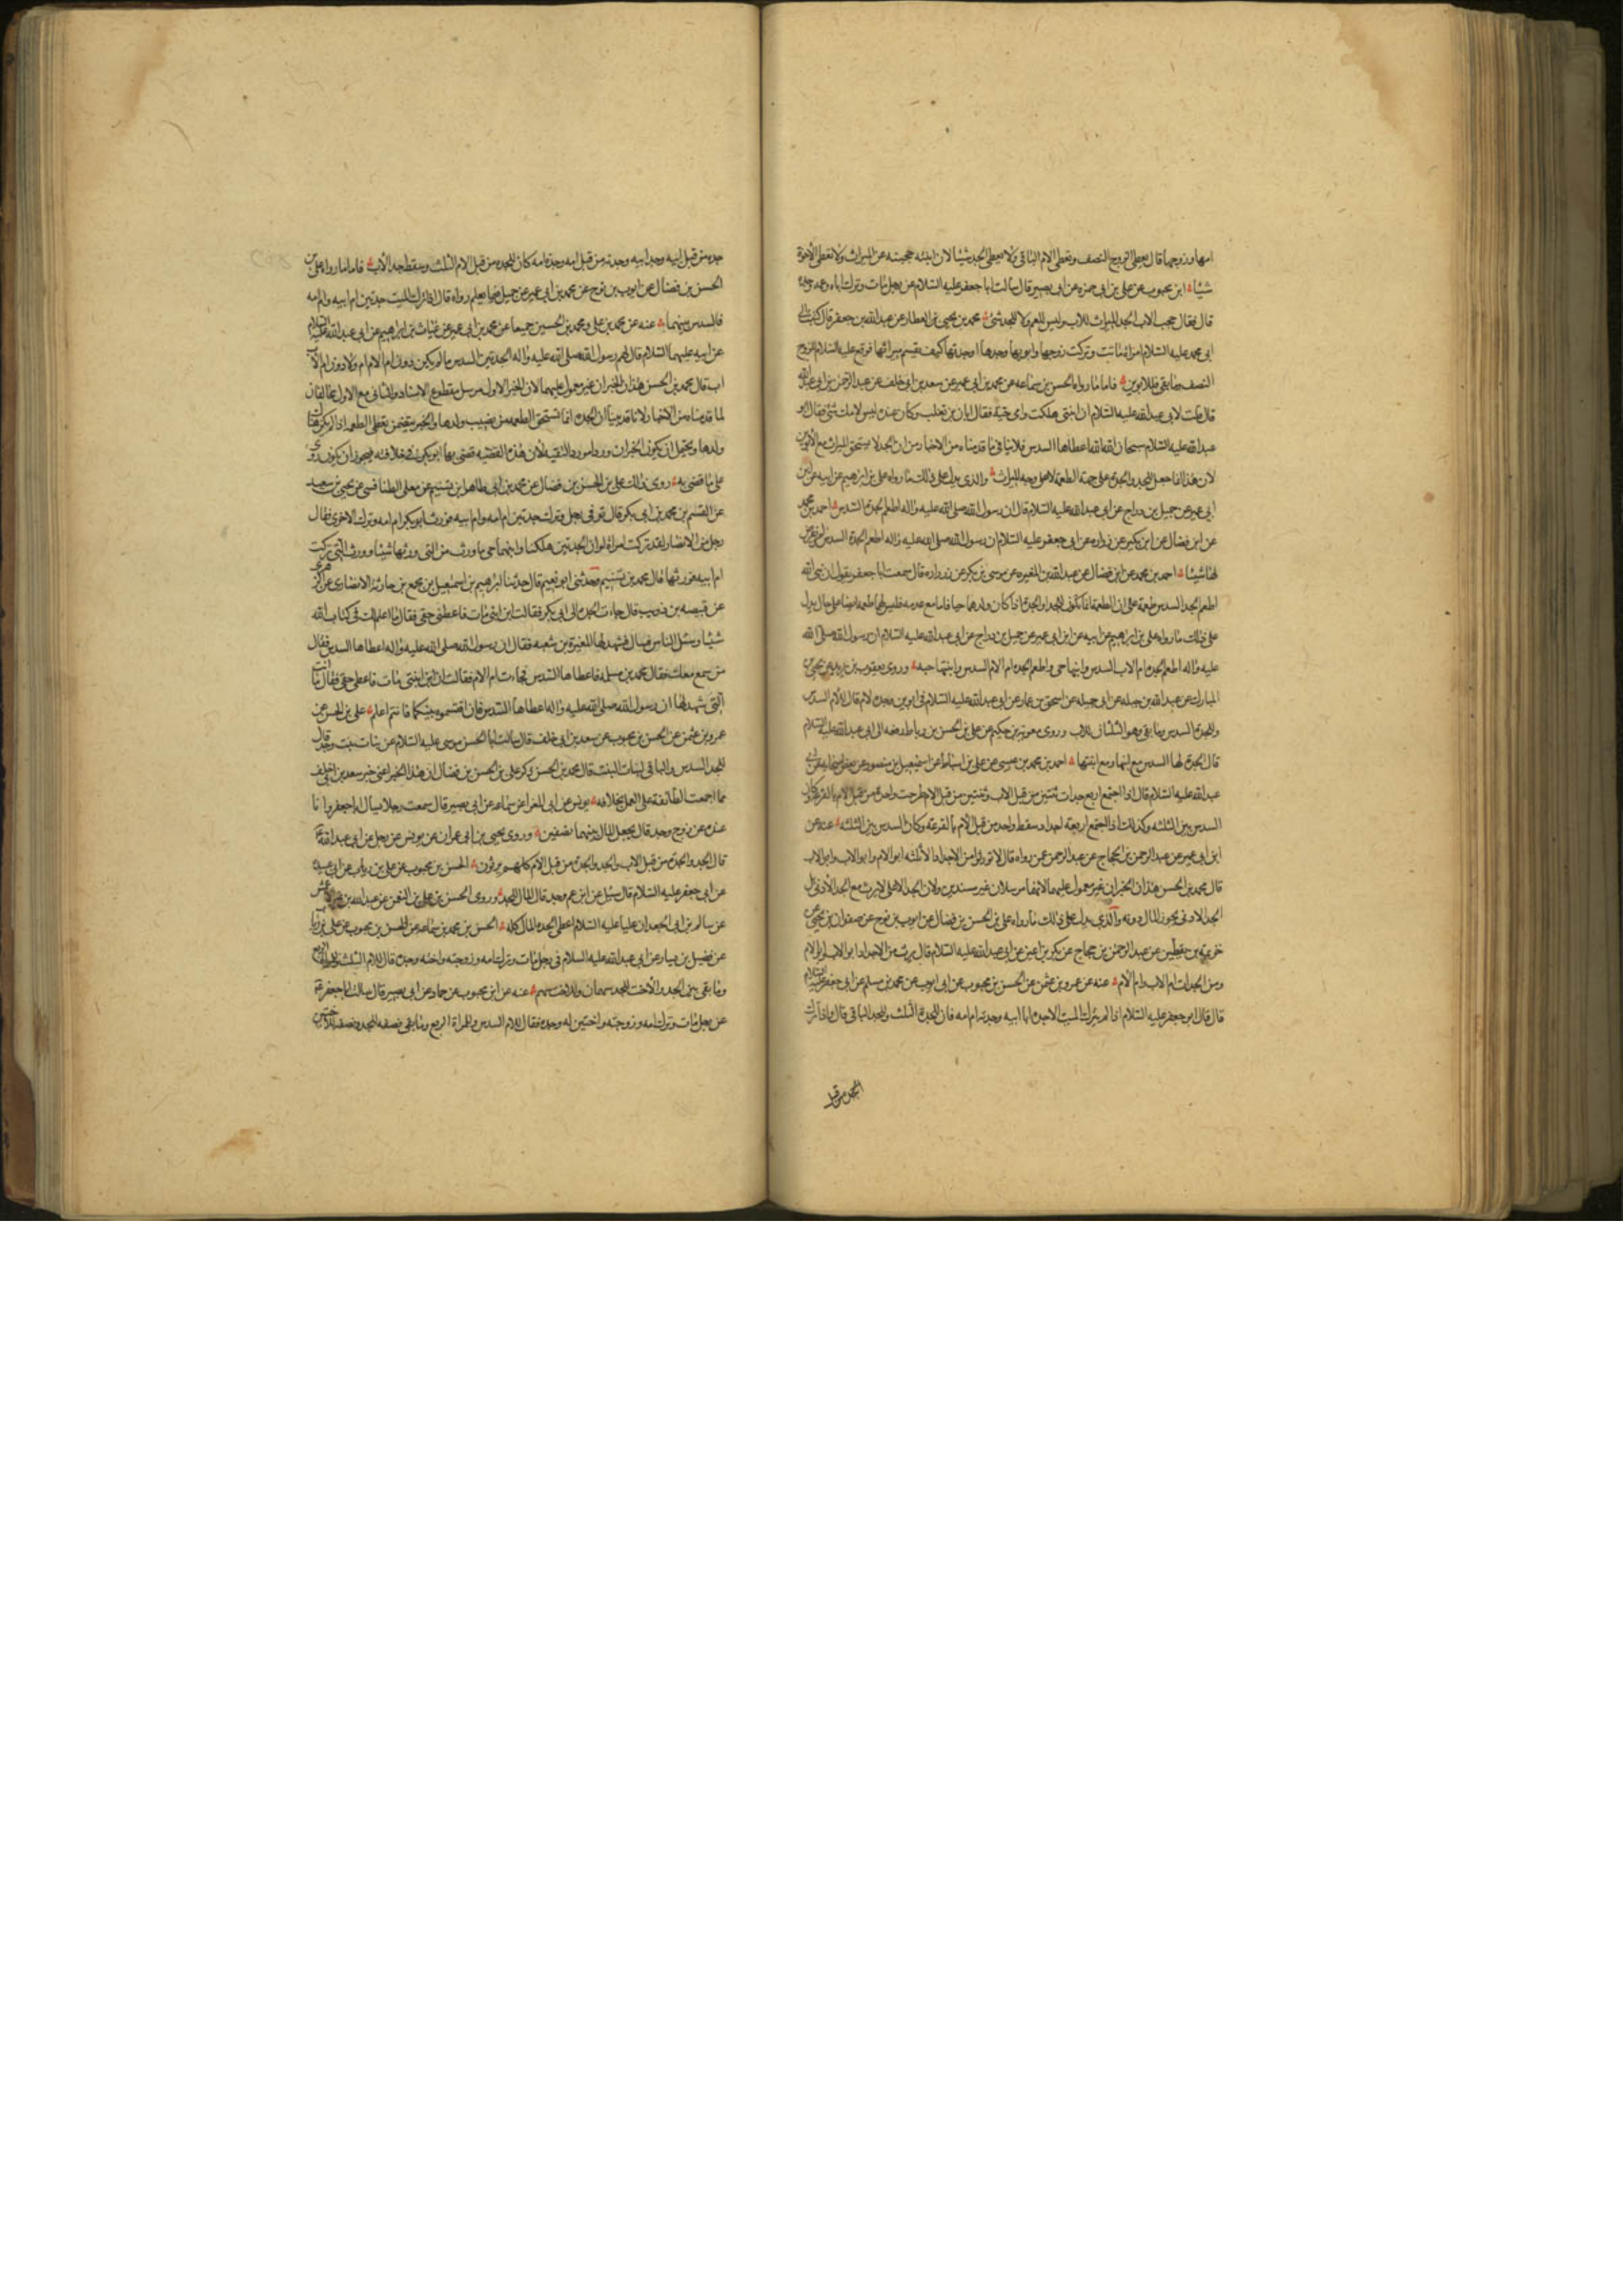 امها وزوجها قال يعطى الزوج النصف ويعطى الام الباقى ولا يعطى الجد شيئا لان ابنته حجبته عن الميراث ولا يعطى الاخوة
شيئا ابن محبوب عن على بن ابى حمزه عن ابى بصير قال سالت ابا جعفر عليه السلام عن رجل مات وترك اباه وعمه وجده
قال فقال حجب الاب الجد الميراث للاب وليس للعم ولا للجد شئ محمد بن يحيى العطار عن عبد الله بن جعفر قال كتبت الى
ابى محمد عليه السلام امراة ماتت وتركت زوجها وابويها وجدها او جدتها كيف يقسم ميراثها فوقع عليه السلام للزوج
النصف وما بقى فللابوين فاما ما رواه الحسن بن سماعه عن محمد بن ابى عمير عن سعد بن ابى خلف عن عبد الرحمن بن ابى عبد الله
قال قلت لابى عبد الله عليه السلام ان ابنتى هلكت وامى حية فقال ابان بن تغلب وكان عنده ليس لامك شئ فقال ابو
عبد الله عليه السلام سبحان الله اعطاها السدس فلا ينافى ما قدمناه من الاخبار من ان الجد لا يستحق الميراث مع الابوين
لان هذا انما جعل للجد والجدة على جهة الطعمة لا على وجه الميراث والذى يدل على ذلك ما رواه على بن ابرهيم عن ابيه عن ابن
ابى عمير عن جميل بن دراج عن ابى عبد الله عليه السلام قال ان رسول الله صلى الله عليه واله اطعم الجدة السدس احمد بن محمد
عن ابن فضال عن ابن بكير عن زراره عن ابى جعفر عليه السلام ان رسول الله صلى الله عليه واله اطعم الجدة السدس ولم يفرض
لها شيئا احمد بن محمد عن ابن فضال عن عبد الله بن المغيره عن موسى بن بكر عن زراره قال سمعت ابا جعفر يقول ان نبى الله
اطعم الجد السدس طعمة على ان الطعمة انما تكون للجد او الجدة اذا كان ولدها حيا فاما مع عدمه فليس لها طعمه ايضا على حال يدل
على ذلك ما رواه على بن ابرهيم عن ابيه عن ابن ابى عمير عن جميل بن دراج عن ابى عبد الله عليه السلام ان رسول الله صلى الله
عليه واله اطعم الجده ام الاب السدس وابنها حى واطعم الجده ام الام السدس وابنتها حيه وروى يعقوب بن يزيد عن يحيى بن
المبارك عن عبد الله بن جبله عن ابى جميله عن اسحق بن عمار عن ابى عبد الله عليه السلام فى ابوين وجده لام قال للام السدس
وللجدة السدس وما بقى وهو الثلثان للاب وروى معويه بن حكيم عن على بن الحسن بن رباط رفعه الى ابى عبد الله عليه السلام
قال الجدة لها السدس مع ابنها ومع ابنتها احمد بن محمد بن عيسى عن على بن اسباط عن اسمعيل بن منصور عن بعض اصحابه عن ابى
عبد الله عليه السلام قال اذا اجتمع اربع جدات ثنتين من قبل الاب وثنتين من قبل الام طرحت واحدة من قبل الام بالقرعة وكان
السدس بين الثلثه وكذلك اذا اجتمع اربعة اجداد سقط واحد من قبل الام بالقرعة وكان السدس بين الثلثه عنه عن
ابن ابى عمير عن عبد الرحمن بن الحجاج عن عبد الرحمن عمن رواه قال لا تورثوا من الاجداد الا ثلثه ابو الام وابو الاب وابو اب الاب
قال محمد بن الحسن هذان الخبران غير معمول عليهما لانهما مرسلان غير مسندين ولان الجد الاعلى لا يرث مع الجد الادنى بل
الجد الادنى يحوز المال دونه والذى يدل على ذلك ما رواه على بن الحسن بن فضال عن ايوب بن نوح عن صفوان بن يحيى عن
خزيمة بن يقطين عن عبد الرحمن بن حجاج عن بكير بن اعين عن ابى عبد الله عليه السلام قال يرث من الاجداد ابو الاب وابو الام
ومن الجدات ام الاب وام الام عنه عن عمرو بن عثمن عن الحسن بن محبوب عن ابى ايوب عن محمد بن مسلم عن ابى جعفر عليه السلام
قال قال ابو جعفر عليه السلام اذا لم يترك الميت الا جده ابا ابيه وجدته ام امه فان للجدة الثلث وللجد الباقى قال واذا ترك
الجده من قبل
جده من قبل ابيه وجد ابيه وجدته من قبل امه وجدة امه كان للجده من قبل الام الثلث وسقط جدة الام فاما ما رواه على بن
الحسن بن فضال عن ايوب بن نوح عن محمد بن ابى عمير عن جميل فيما يعلم رواه قال اذا ترك الميت جدتين ام ابيه وام امه
فالسدس بينهما عنه عن محمد بن على ومحمد بن الحسين جميعا عن محمد بن ابى عمير عن غياث بن ابرهيم عن ابى عبد الله عليه السلام
عن ابيه عليهما السلام قال اطعم رسول الله صلى الله عليه واله الجدتين السدس ما لم يكن دون ام الام ام ولا دون ام الاب
اب قال محمد بن الحسن هذان الخبران غير معمول عليهما لان الخبر الاول مرسل مقطوع الاسناد والثانى مع الاول مخالفان
لما قدمناه من الاخبار ولانا قد بينا ان الجدة انما تستحق الطعمه من نصيب ولدها والخبر يتضمن يعطى الطعمه اذا لم يكن هناك
ولدها ويحتمل ان يكون الخبران وردا مورد التقيه لان هذه القضيه قضى بها ابو بكر فى خلافته فيجوز ان يكون روى
على ما قضى به روى ذلك على بن الحسن بن فضال عن محمد بن ابى طاهر بن تسنيم عن معلى الطنافسى عن يحيى بن سعيد
عن القسم بن محمد بن ابى بكر قال توفى رجل وترك جدتين ام امه وام ابيه فورث ابو بكر ام امه وترك الاخرى فقال
رجل من الانصار لقد تركت امراة لو ان الجدتين هلكتا وابنهما حى ما ورث من التى ورثتها شيئا وورث التى تركت
ام ابيه فورثها قال محمد بن تسنيم وحدثنى ابو نعيم قال حدثنا ابرهيم بن اسمعيل بن مجمع بن جارية الانصارى عن الزهرى
عن قبيصه بن ذويب قال جاءت الجده الى ابى بكر فقالت ان ابن ابنى مات فاعطنى حقى فقال ما اعلم لك فى كتاب الله
شيئا وسئل الناس فسال فشهد لها المغيرة بن شعبه فقال ان رسول الله صلى الله عليه واله اعطاها السدس فقال
من سمع معك فقال محمد بن مسلمه فاعطاها السدس فجاءت ام الام فقالت ان ابن ابنتى مات فاعطنى حقى فقال ما انت
التى شهد لها ان رسول الله صلى الله عليه واله اعطاها السدس فان اقتسموه بينكما فانتم اعلم على بن الحسن عن
عمرو بن عثمن عن الحسن بن محبوب عن سعد بن ابى خلف قال سالت ابا الحسن موسى عليه السلام عن بنات بنت وجد قال
للجد السدس والباقى لبنات البنت قال محمد بن الحسن ذكر على بن الحسن بن فضال ان هذا الخبر اعنى خبر سعد بن ابى خلف
مما اجمعت الطائفة على العمل بخلافه يونس عن ابى المغرا عن سماعه عن ابى بصير قال سمعت رجلا يسال ابا جعفر وانا
عنده عن زوج وجد قال يجعل المال بينهما نصفين وروى يحيى بن ابى عمران عن يونس عن رجل عن ابى عبد الله
قال الجد والجدة من قبل الاب والجد والجدة من قبل الام كلهم يرثون الحسن بن محبوب عن على بن رئاب عن ابى عبيده
عن ابى جعفر عليه السلام قال سئل عن ابن عم وجد قال المال للجد وروى الحسن بن على بن النعمن عن عبد الله بن
عن سالم بن ابى الجعد ان عليا عليه السلام اعطى الجده المال كله الحسن بن محمد بن سماعه عن الحسن بن محبوب عن على بن رئاب
عن فضيل بن يسار عن ابى عبد الله عليه السلام فى رجل مات وترك امه وزوجته واخته وجده قال للام الثلث وللمراة الربع
وما بقى بين الجد والاخت للجد سهمان وللاخت سهم عنه عن ابن محبوب عن حماد عن ابى بصير قال سالت ابا جعفر
عن رجل مات وترك امه وزوجته واختين له وجده فقال للام السدس وللمراة الربع وما بقى نصفه للجد ونصفه للاختين